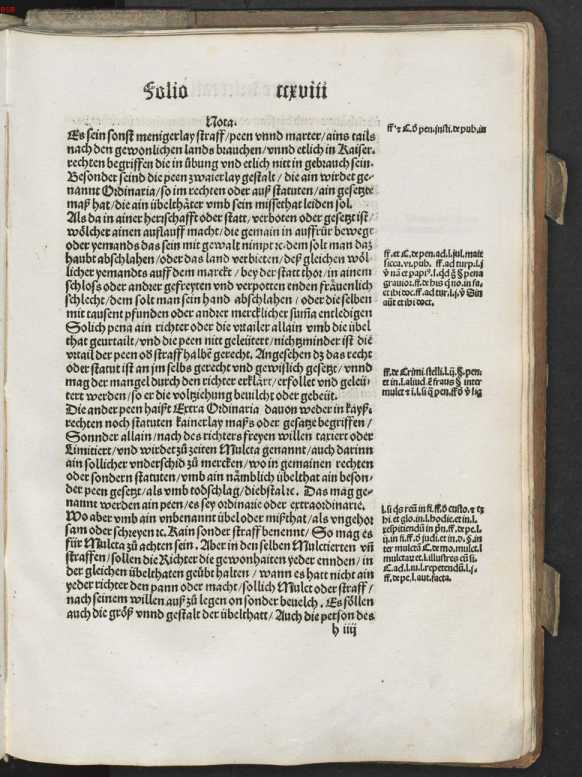 Folio ccxviii
Nota.
Es sein sonst menigerlay straff/peen vnnd marter/ains tails
nach den gewonlichen lands breuchen/vnnd etlich in Kaiser.
rechten begriffen die in übung vnd etlich nitt in gebrauch sein.
Besonder seind die peen zwaierlay gestalt/die ain wirdet ge-
nannt Ordinaria/so im rechten oder auß statuten/ain gesetzte
maß hat/die ain übelthäter vmb sein missethat leiden sol.
Als da in ainer herrschafft oder statt/verboten oder gesetzt ist/
wölcher ainen aufflauff macht/die gemain in auffrür bewegt
oder yemands das sein mit gewalt nimpt ꝛc. dem solt man daz
haubt abschlahen/oder das land verbieten/deß gleichen wöl
licher yemandts auff dem marckt/bey der statt thor/in ainem
schloß oder andrer gefreyten vnd verpotten enden fräuenlich
schlecht/dem solt man sein hand abschlahen/oder die selben
mit tausent pfunden oder andrer mercklicher sum̃a entledigen
Solich pena ain richter oder die vrtailer allain vmb die übel
that geurtailt/vnd die peen nitt geleütert/nichtzminder ist die
vrtail der peen oð straff halbẽ gerecht. Angesehen dz das recht
oder statut ist an jm selbs gerecht vnd gewißlich gesetzt/vnnd
mag der mangel durch den richter erklärt/erfollet vnd geleü-
tert werden/so er die voltziehung beuilcht oder gebeüt.
Die ander peen haißt Extra Ordinaria dauon weder in kayß.
rechten noch statuten kainerlay maß s oder gesatze begriffen/
Sonnder allain/nach des richters freyen willen taxiert oder
Limitiert/vnd wirdet zů zeiten Mulcta genannt/auch darinn
ain sollicher vnderschid zů mercken/wo in gemainen rechten
oder sondern statuten/vmb ain nämblich übelthat ain beson-
der peen gesetzt/als vmb todschlag/diebstal ꝛc. Das mag ge-
nannt werden ain peen/es sey ordinarie oder extraordinarie.
Wo aber vmb ain vnbenannt übel oder mißthat/als vngehor
sam oder schreyen ꝛc. Kain sonder straff benennt/So mag es
für Mulcta zů achten sein. Aber in den selben Mulctierten vñ
straffen/sollen die Richter die gewonhaiten yeder ennden/in
der gleichen übelthaten geübt halten/wann es hatt nicht ain
yeder richter den pann oder macht/sollich Mulct oder straff/
nach seinem willen auß zů legen on sonder beuelch. Es söllen
auch die größ vnnd gestalt der übelthatt/Auch die person des
h iiij
ff. ⁊ C. ð pen. insti. de pub. iu
ff. et C. de pen. ad. l. jul. maie
ficca. vi. pub. ff. ad turp. l. j
grauior. ff. de his q̇ no. in fa.
et ibi doc.
aũt et ibi doct.
ff. de Crimi. stelli. l. ij. §. pen.
et in. l. aliud. ẽ fraus § inter
l. si q̇s reũ in fi. ff. ð custo. ⁊ tz
bi. et glo. in. l. hodie. et in. l.
respiciendũ in pñ. ff. de pe. l.
ter mulctã C. de mo. mulct. l
multarũ et. l. illustres eũ li.
C. ad. l. iu. l. repetendũ. l. j.
ff. de pe. l. aut. facta.